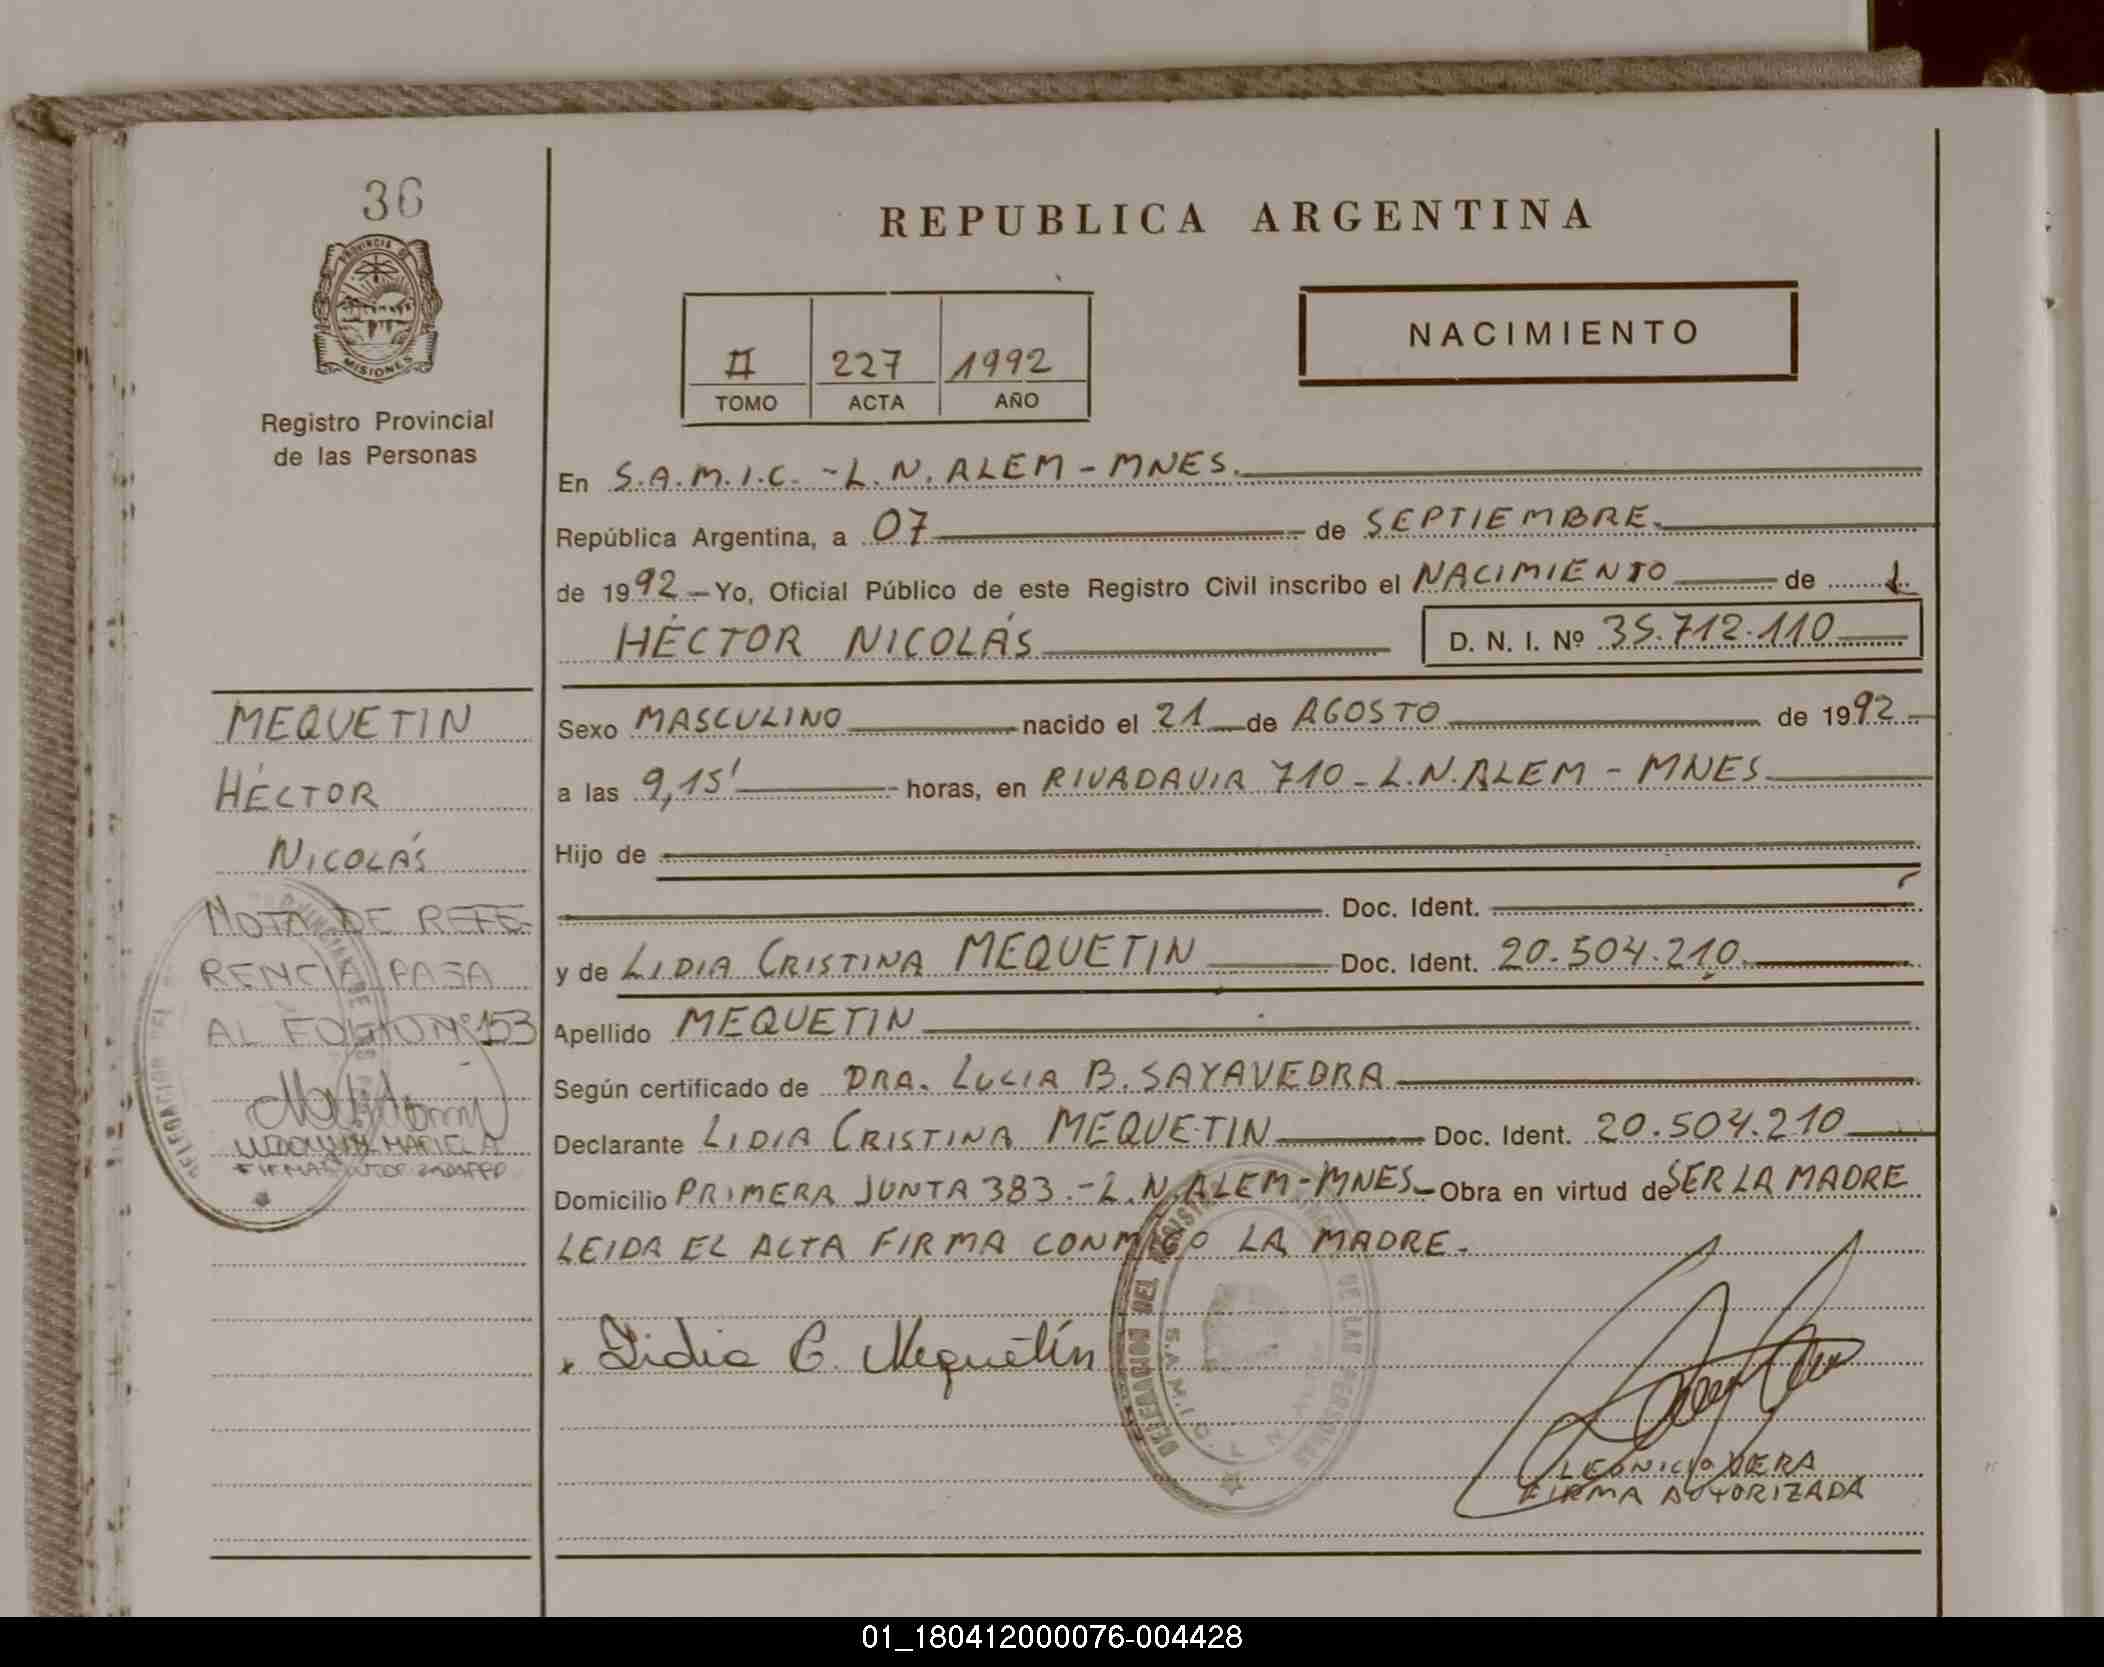 36
PROVINCIA DE
MISIONES
Registro Provincial
de las Personas
REPUBLICA ARGENTINA
II 227 1992
TOMO ACTA AÑO
NACIMIENTO
En S.A.M.I.C. - L.N. ALEM - MNES.
República Argentina, a 07 de SEPTIEMBRE
de 1992 Yo, Oficial Público de este Registro Civil inscribo el NACIMIENTO de
HÉCTOR NICOLÁS D. N. I. Nº 35.712.110
Sexo MASCULINO nacido el 21 de AGOSTO de 1992
a las 9,15' horas, en RIVADAVIA 710 - L.N. ALEM - MNES
Hijo de
Doc. Ident.
y de LIDIA CRISTINA MEQUETIN Doc. Ident. 20.504.210
Apellido MEQUETIN
Según certificado de DRA. LUCIA B. SAYAVEDRA
Declarante LIDIA CRISTINA MEQUETIN Doc. Ident. 20.504.210
Domicilio PRIMERA JUNTA 383.- L.N. ALEM - MNES Obra en virtud de SER LA MADRE
LEIDA EL ACTA FIRMA CONMIGO LA MADRE.
Lidia C. Mequetín
DELEGACION DEL REGISTRO DE LAS PERSONAS
S.A.M.I.C.
LEONICIO VERA
FIRMA AUTORIZADA
MEQUETIN
HÉCTOR
NICOLÁS
NOTA DE REFE-
RENCIA PASA
AL FOLIO Nº 153
MARIELA
01_180412000076-004428